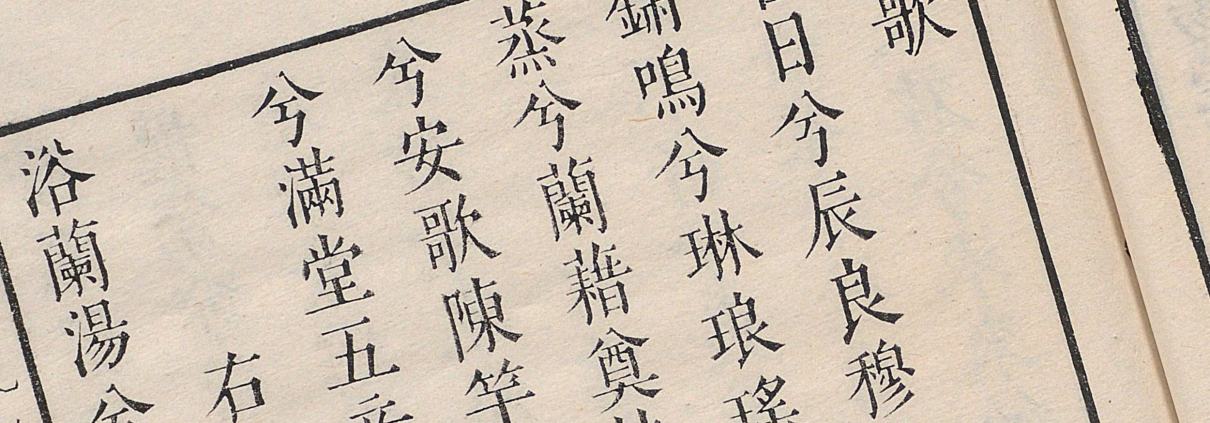 歌
日兮辰良穆
鏘鳴兮琳琅瑤
蒸兮蘭藉奠
兮安歌陳竽
兮滿堂五音
右
浴蘭湯兮